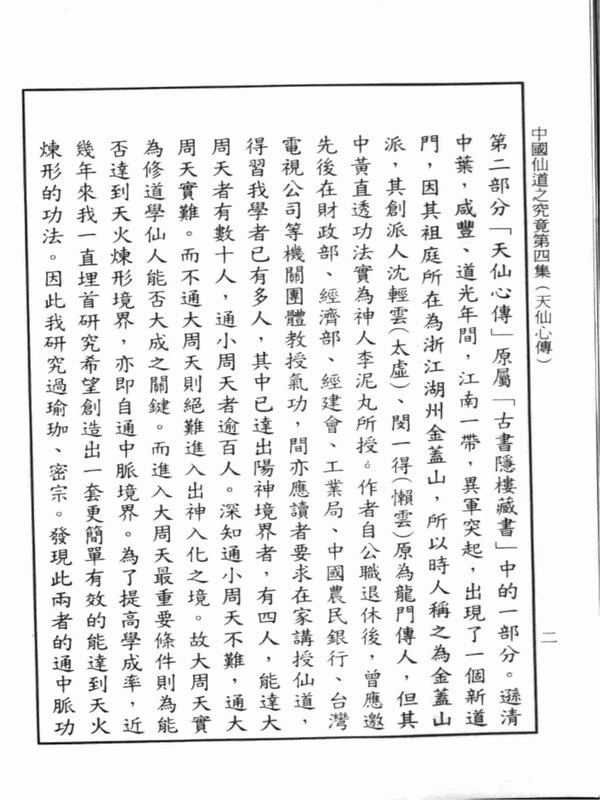 中國仙道之究竟第四集(天仙心傳)
二
第二部分「天仙心傳」原屬「古書隱樓藏書」中的一部分。遜清
中葉，咸豐、道光年間，江南一帶，異軍突起，出現了一個新道
門，因其祖庭所在為浙江湖州金蓋山，所以時人稱之為金蓋山
派，其創派人沈輕雲(太虛)、閔一得(懶雲)原為龍門傳人，但其
中黃直透功法實為神人李泥丸所授。作者自公職退休後，曾應邀
先後在財政部、經濟部、經建會、工業局、中國農民銀行、台灣
電視公司等機關團體教授氣功，間亦應讀者要求在家講授仙道，
得習我學者已有多人，其中已達出陽神境界者，有四人，能達大
周天者有數十人，通小周天者逾百人。深知通小周天不難，通大
周天實難。而不通大周天則絕難進入出神入化之境。故大周天實
為修道學仙人能否大成之關鍵。而進入大周天最重要條件則為能
否達到天火煉形境界，亦即自通中脈境界。為了提高學成率，近
幾年來我一直埋首研究希望創造出一套更簡單有效的能達到天火
煉形的功法。因此我研究過瑜珈、密宗。發現此兩者的通中脈功